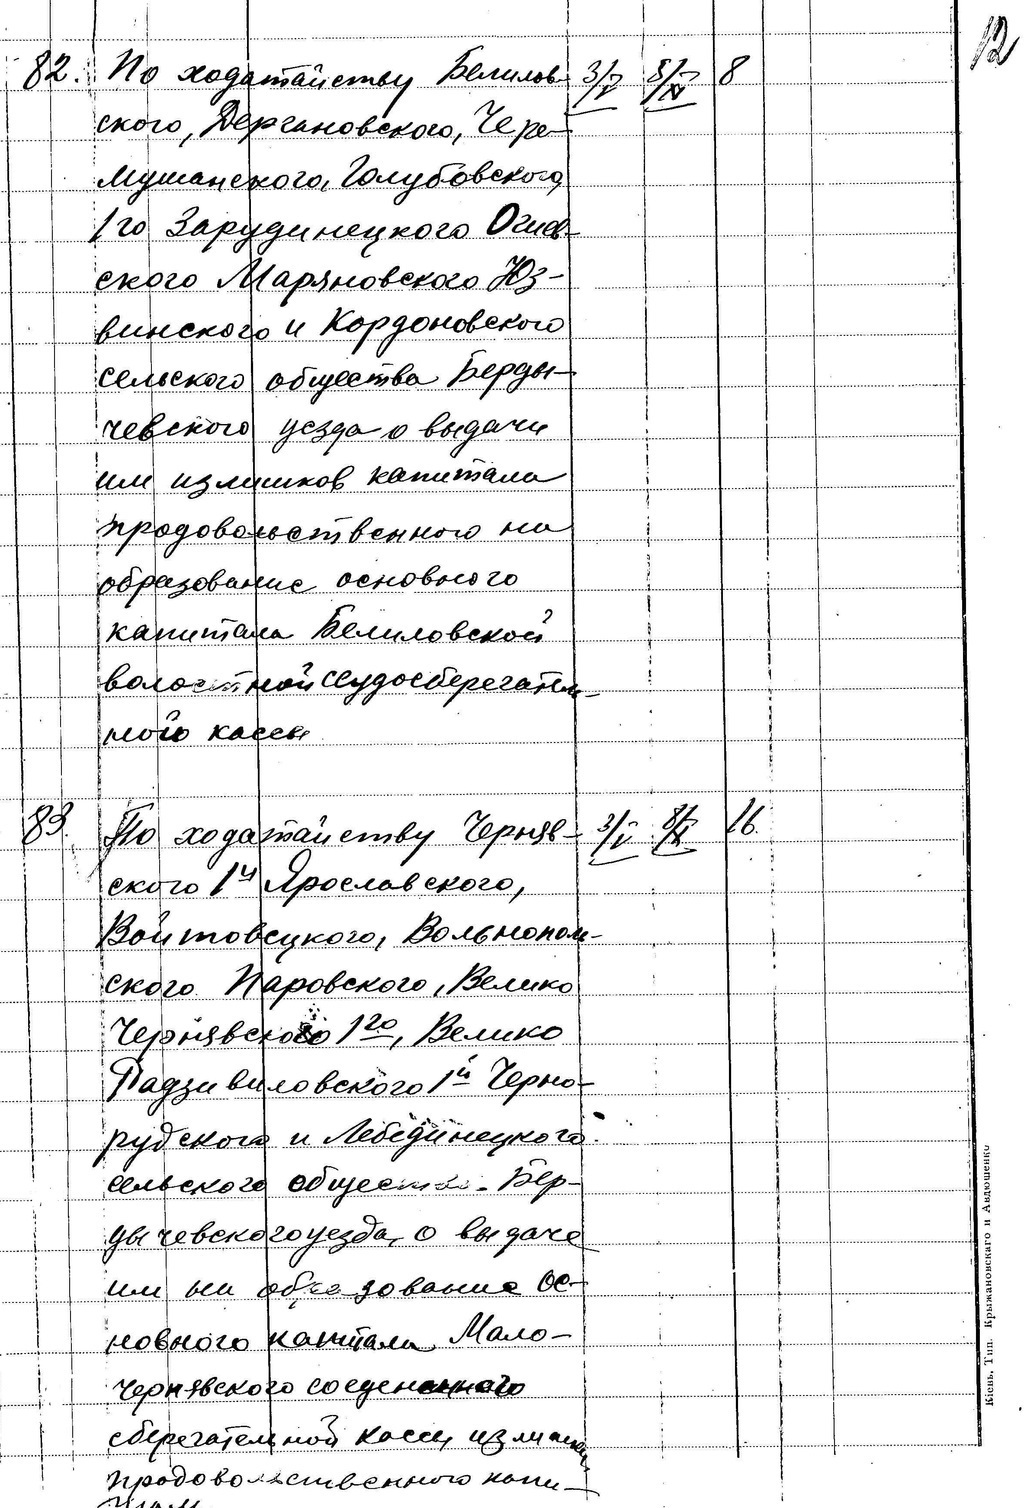 12
82. По ходатайству Белилов- 3/V 8/XI 8
ского, Дергановского, Чере-
мушанского, Голубовского,
1го Зарудинецкого Огиев-
ского Маряновского Юз-
винского и Кордоновского
сельского общества Берды-
чевского уезда о выдачи
им излишков капитала
продовольственного на
образование основного
капитала Белиловской
волостной ссудосберегатель-
ной кассы
83. По ходатайству Черняв- 3/V 16.
ского 1й Ярославского,
Войтовецкого,
ского Паровского, Велико
Чернявского 1го, Велико
Радзивиловского 1й Черно-
рудского и Лебединецкого
сельского общества Бер-
дычевского уезда, о выдаче
им на образование ос-
новного капитала Мало-
Чернявского
сберегательной кассы излишки
продовольственного капи-
тала
Кіевъ, Тип. Крыжановскаго и Авдюшенко